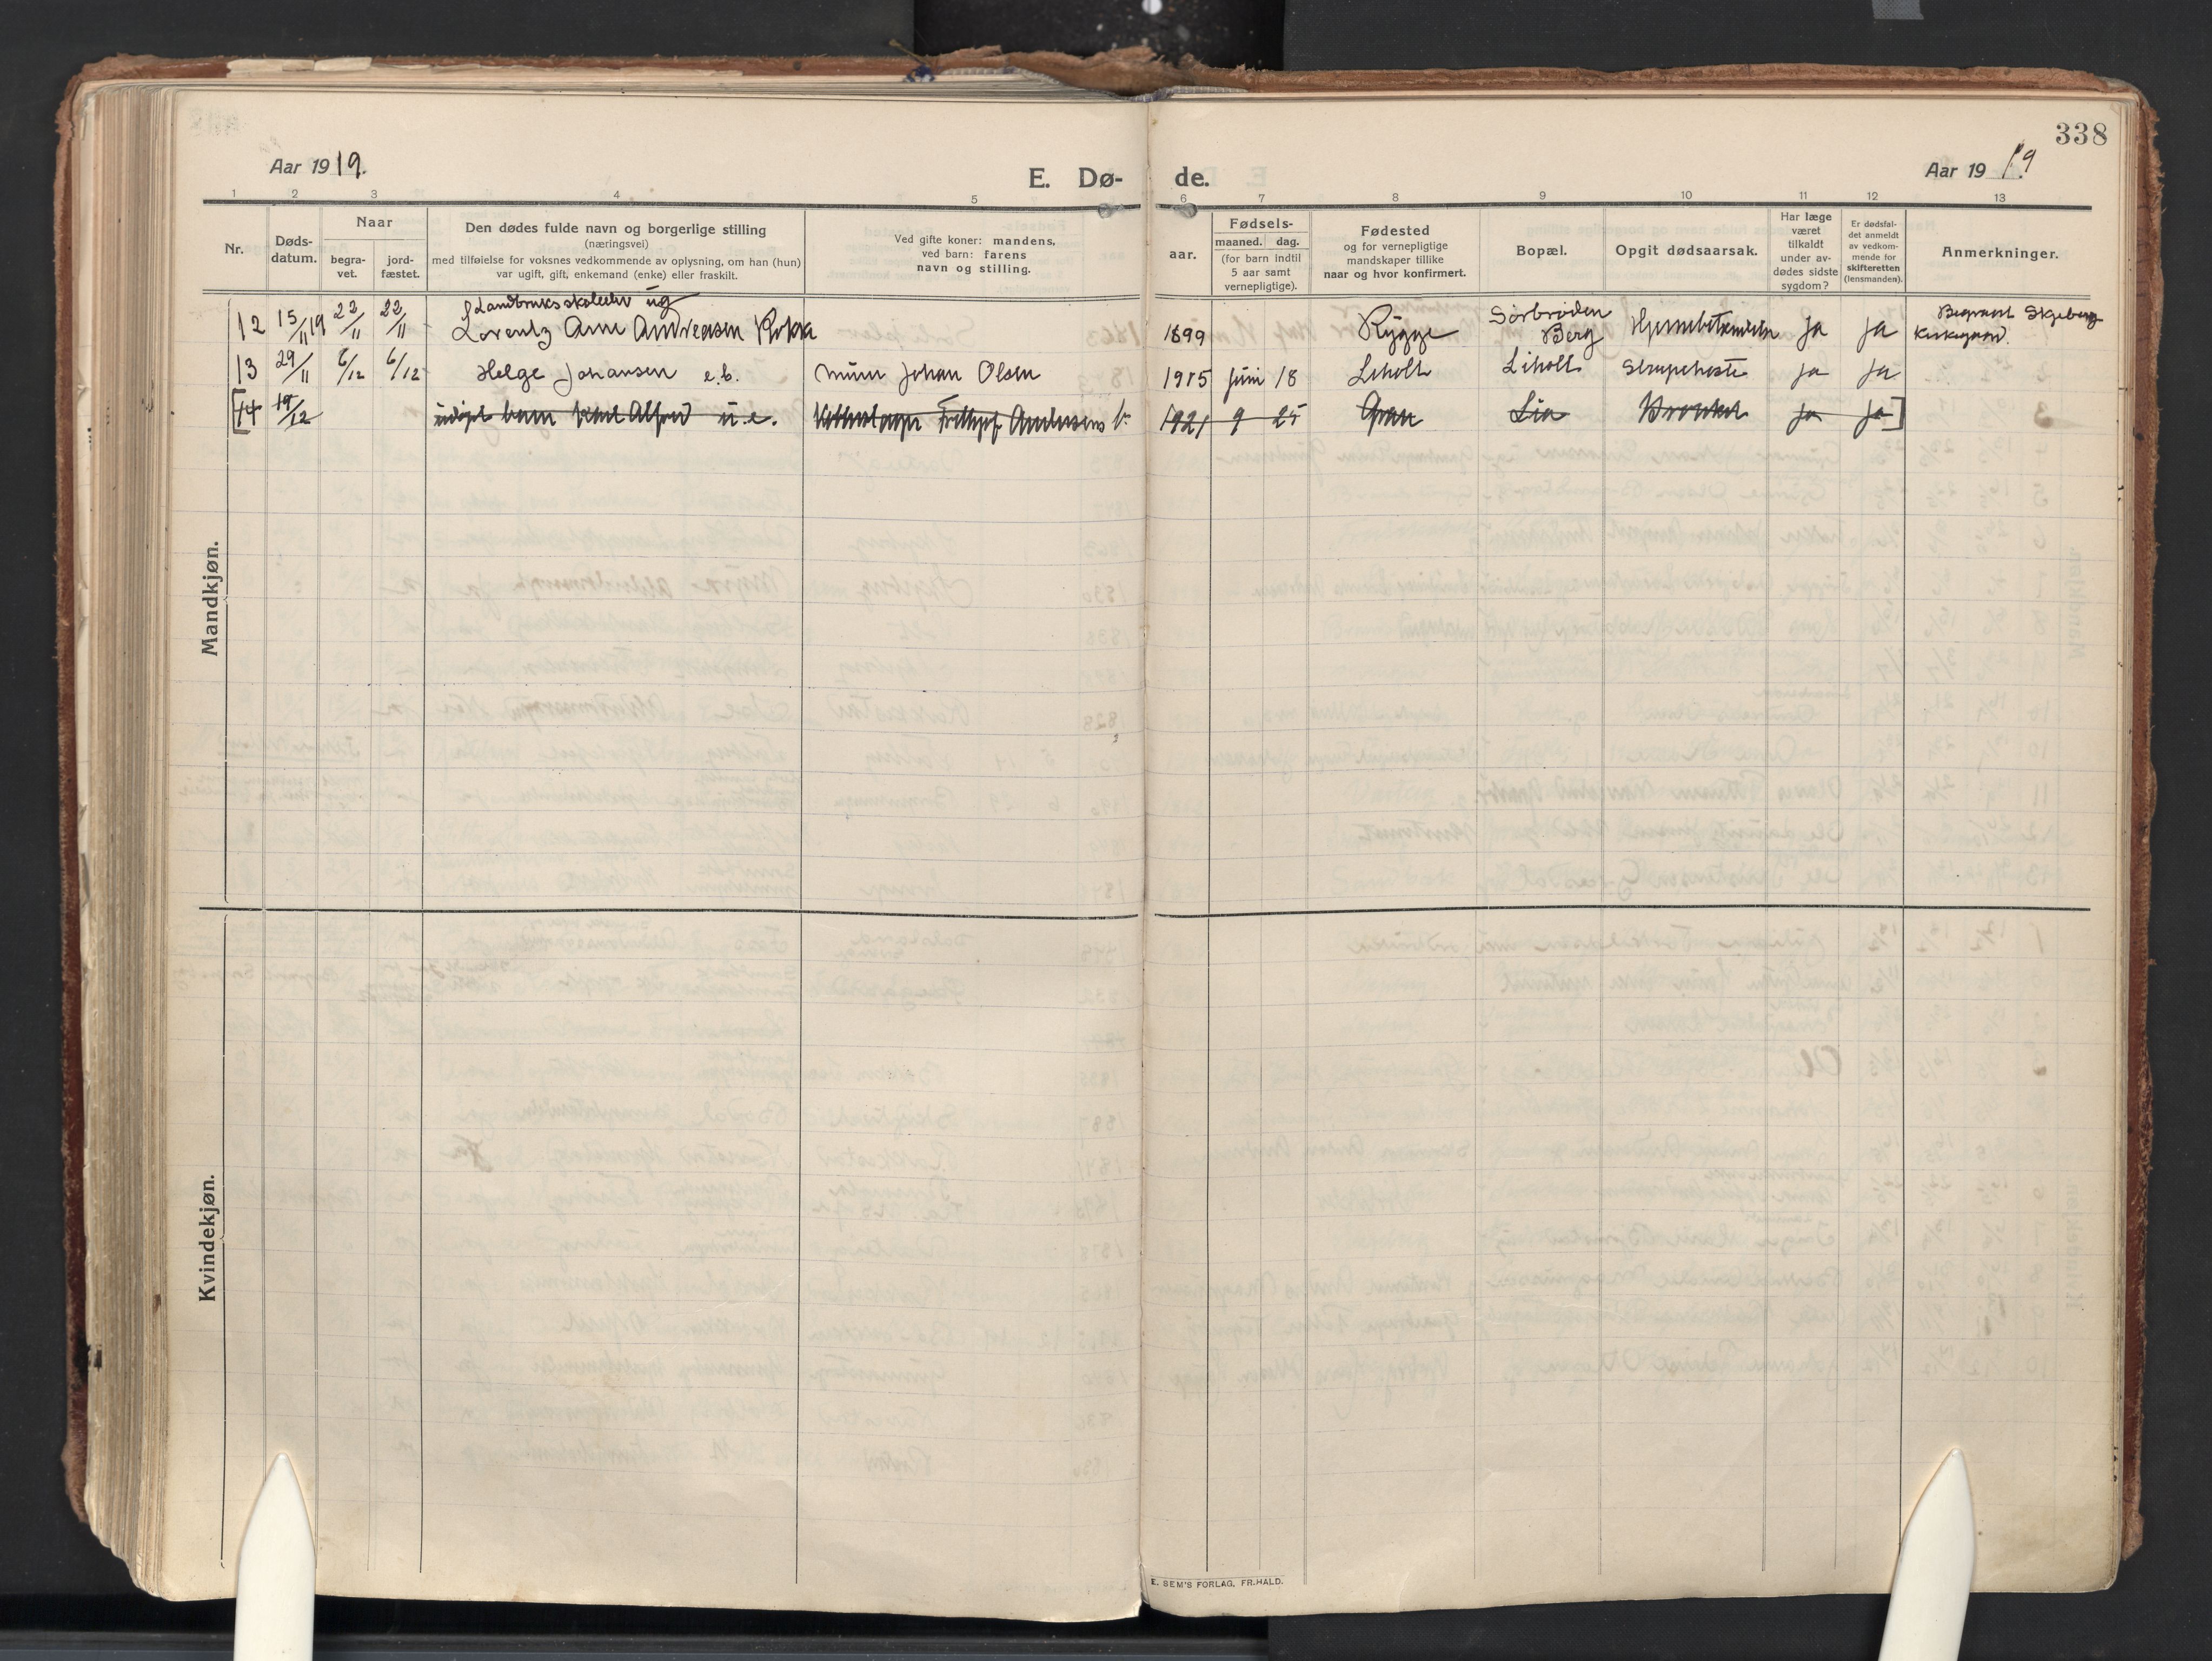 338
Aar 1919.
E. Dø- de.
Aar 1919
1 2 3 4 5 6 7 8 9 10 11 12 13
Nr.
Døds-
datum.
Naar
begra-
vet.
jord-
fæstet.
Den dødes fulde navn og borgerlige stilling
(næringsvei)
med tilføielse for voksnes vedkommende av oplysning, om han (hun)
var ugift, gift, enkemand (enke) eller fraskilt.
Ved gifte koner: mandens,
ved barn: farens
navn og stilling.
aar.
Fødsels-
maaned. dag.
(for barn indtil
5 aar samt
vernepligtige).
Fødested
og for vernepligtige
mandskaper tillike
naar og hvor konfirmert.
Bopæl.
Opgit dødsaarsak.
Har læge
været
tilkaldt
under av-
dødes sidste
sygdom?
Er dødsfal-
det anmeldt
av vedkom-
mende for
skifteretten
(lensmanden).
Anmerkninger.
Mandkjøn.
Landbruksskoleelev ug
12 15/11 19 22/11 22/11 Lorentz Arne Andreasen Rokke 1899 Rygge Sørbrøden
Berg Hjernebetændelse ja ja Begravet Skjeberg
Kirkegaard.
13 29/11 6/12 6/12 Helge Johansen e.b. murer Johan Olsen 1915 juni 18 Liholt Liholt Strupehoste ja ja
[14 19/12 barn Karl Alfred u.e. Andersens 1921 9 25 Gran Lia ja ja]
Kvindekjøn.
E. SEM'S FORLAG, FR.HALD.